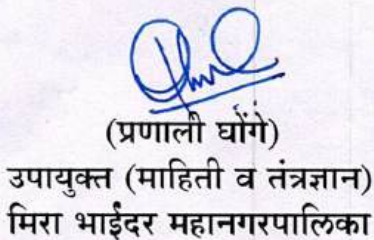 (प्रणाली घोंगे)
उपायुक्त (माहिती व तंत्रज्ञान)
मिरा भाईंदर महानगरपालिका